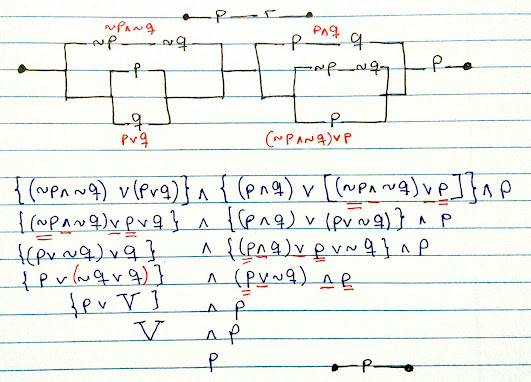 p r
~p∧~q
~p ~q
p
q
p∨q
p∧q
p q
~p ~q
p
(~p∧~q)∨p
p
{(~p∧~q) ∨(p∨q)} ∧ {(p∧q) ∨ [(~p∧~q)∨p]}∧p
{(~p∧~q)∨p∨q} ∧ {(p∧q) ∨ (p∨~q)} ∧ p
{(p∨~q)∨q} ∧ {(p∧q)∨p∨~q}∧p
{p∨(~q∨q)} ∧ (p∨~q) ∧p
{p∨ V} ∧ p
V ∧p
p
p